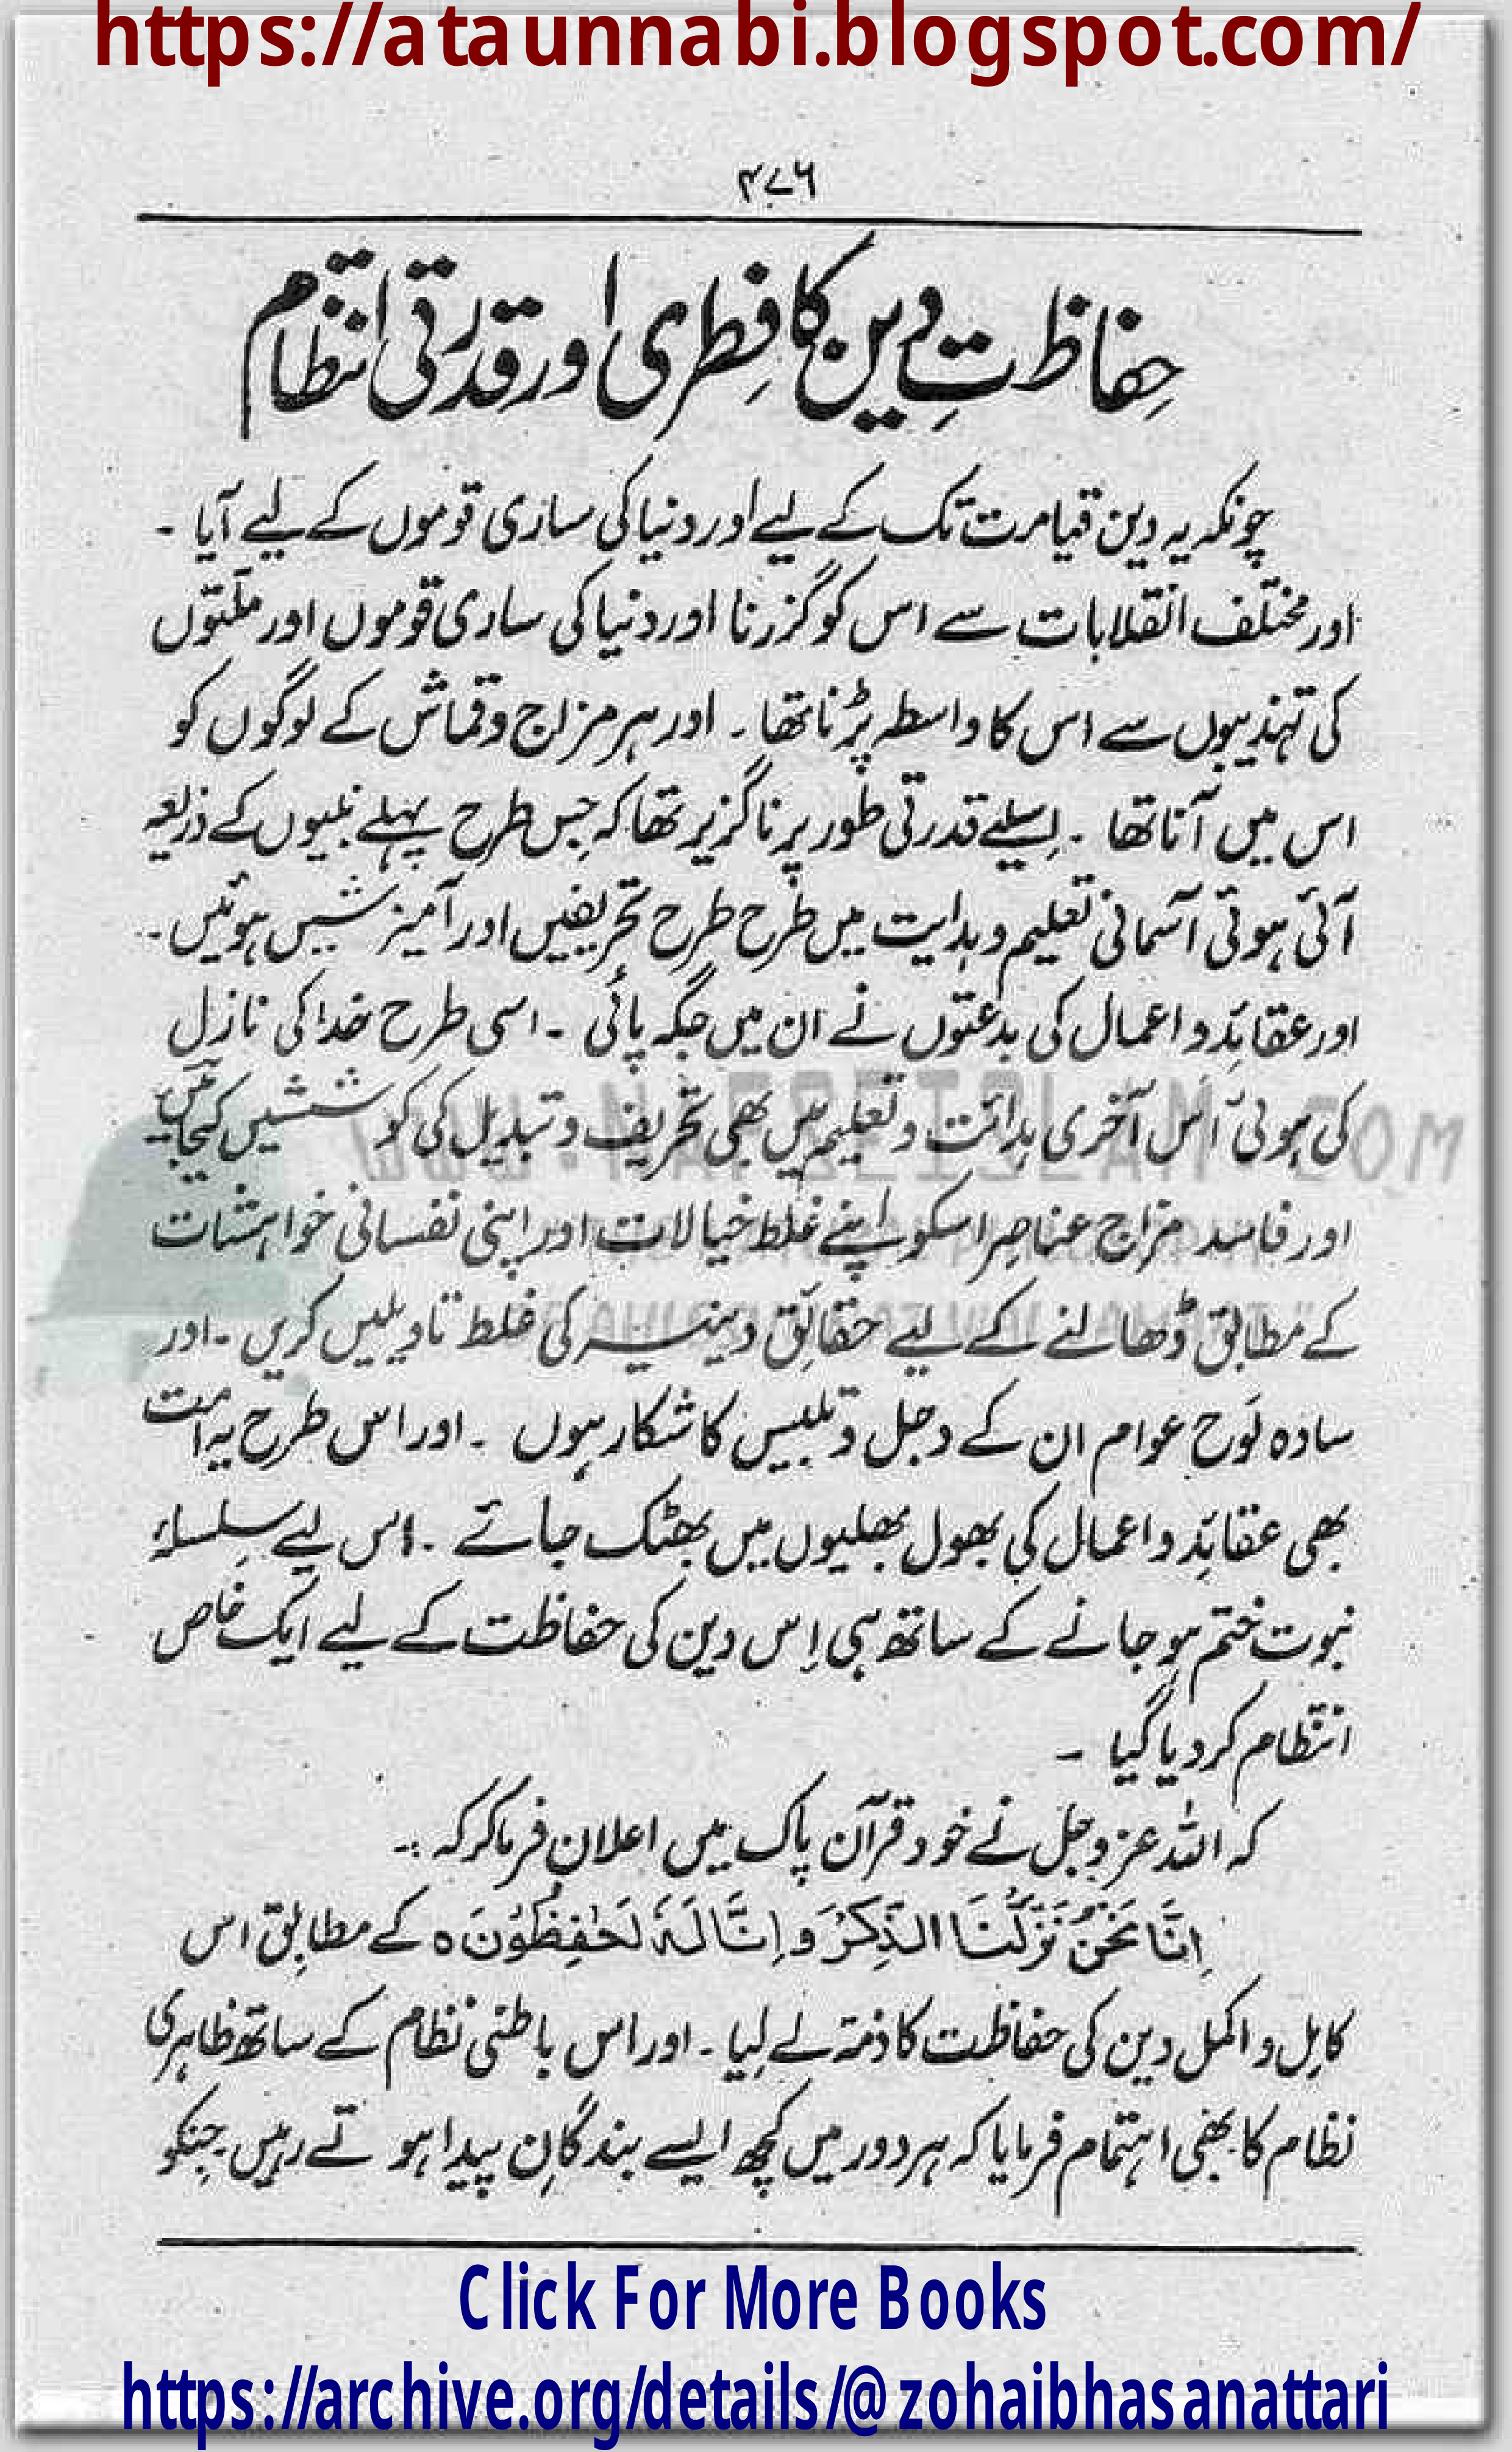 https://ataunnabi.blogspot.com/
۳۷۶
حِفاظتِ دین کا فِطری اور قدرتی انتظام
چونکہ یہ دین قیامت تک کے لیے اور دنیا کی ساری قوموں کے لیے آیا ۔
اور مختلف انقلابات سے اس کو گزرنا اور دنیا کی ساری قوموں اور ملتوں
کی تہذیبوں سے اس کا واسطہ پڑنا تھا ۔ اور ہر مزاج و قماش کے لوگوں کو
اس میں آنا تھا ۔ اسلیے قدرتی طور پر ناگزیر تھا کہ جس طرح پہلے نبیوں کے ذریعہ
آئی ہوئی آسمانی تعلیم و ہدایت میں طرح طرح تحریفیں اور آمیزشیں ہوئیں ۔
اور عقائد و اعمال کی بدعتوں نے ان میں جگہ پائی ۔ اسی طرح خدا کی نازل
کی ہوئی اس آخری ہدائت و تعلیم میں بھی تحریف و تبدیل کی کوششیں کیجائیں
اور فاسد مزاج عناصر اسکو اپنے غلط خیالات اور اپنی نفسانی خواہشات
کے مطابق ڈھالنے کے لیے حقائق دینیہ کی غلط تاویلیں کریں ۔ اور
سادہ لَوح عوام ان کے دجل و تلبیس کا شکار ہوں ۔ اور اس طرح یہ امت
بھی عقائد و اعمال کی بھول بھلیوں میں بھٹک جائے ۔ اس لیے سِلسلۂ
نبوت ختم ہو جانے کے ساتھ ہی اِس دین کی حفاظت کے لیے ایک خاص
انتظام کر دیا گیا ۔
کہ اللہ عز و جل نے خود قرآن پاک میں اعلان فرما کر کہ :۔
اِنَّا نَحْنُ نَزَّلْنَا الذِّكْرَ وَ اِنَّا لَهٗ لَحٰفِظُوْنَ ہ کے مطابق اس
کامِل و اکمل دین کی حفاظت کا ذمّہ لے لیا ۔ اور اس باطنی نظام کے ساتھ ظاہری
نظام کا بھی اہتمام فرمایا کہ ہر دور میں کچھ ایسے بندگانِ پیدا ہوتے رہیں جنکو
Click For More Books
https://archive.org/details/@zohaibhasanattari